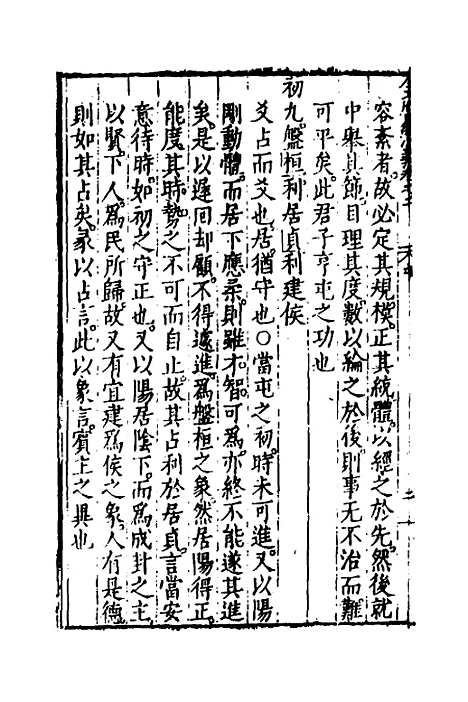 容紊者故必定其規模。正其統體。以經之於先。然後就
中舉其節目。理其度數。以綸之於後。則事无不治。而難
可平矣。此君子亨屯之功也
初九。盤桓。利居貞。利建侯
爻占而爻也。居。猶守也○當屯之初。時未可進。又以陽
剛動體。而居下應柔。則雖才智可為。亦終不能遂其進
矣。是以遲回却顧。不得遽進。為盤桓之象。然居陽得正。
能度其時勢之不可而自止。故其占利於居貞。言當安
意待時。如初之守正也。又以陽居陰下。而為成卦之主。
以賢下人。為民所歸。故又有宜建為侯之象。人有是德。
則如其占矣。彖以占言。此以象言。賓主之異也